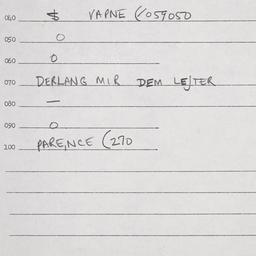 040 $ VAPNE (/059050
050 O
060 O
070 DERLANG MIR DEM LEJTER
080 —
090 O
100 PARE,NCE (270